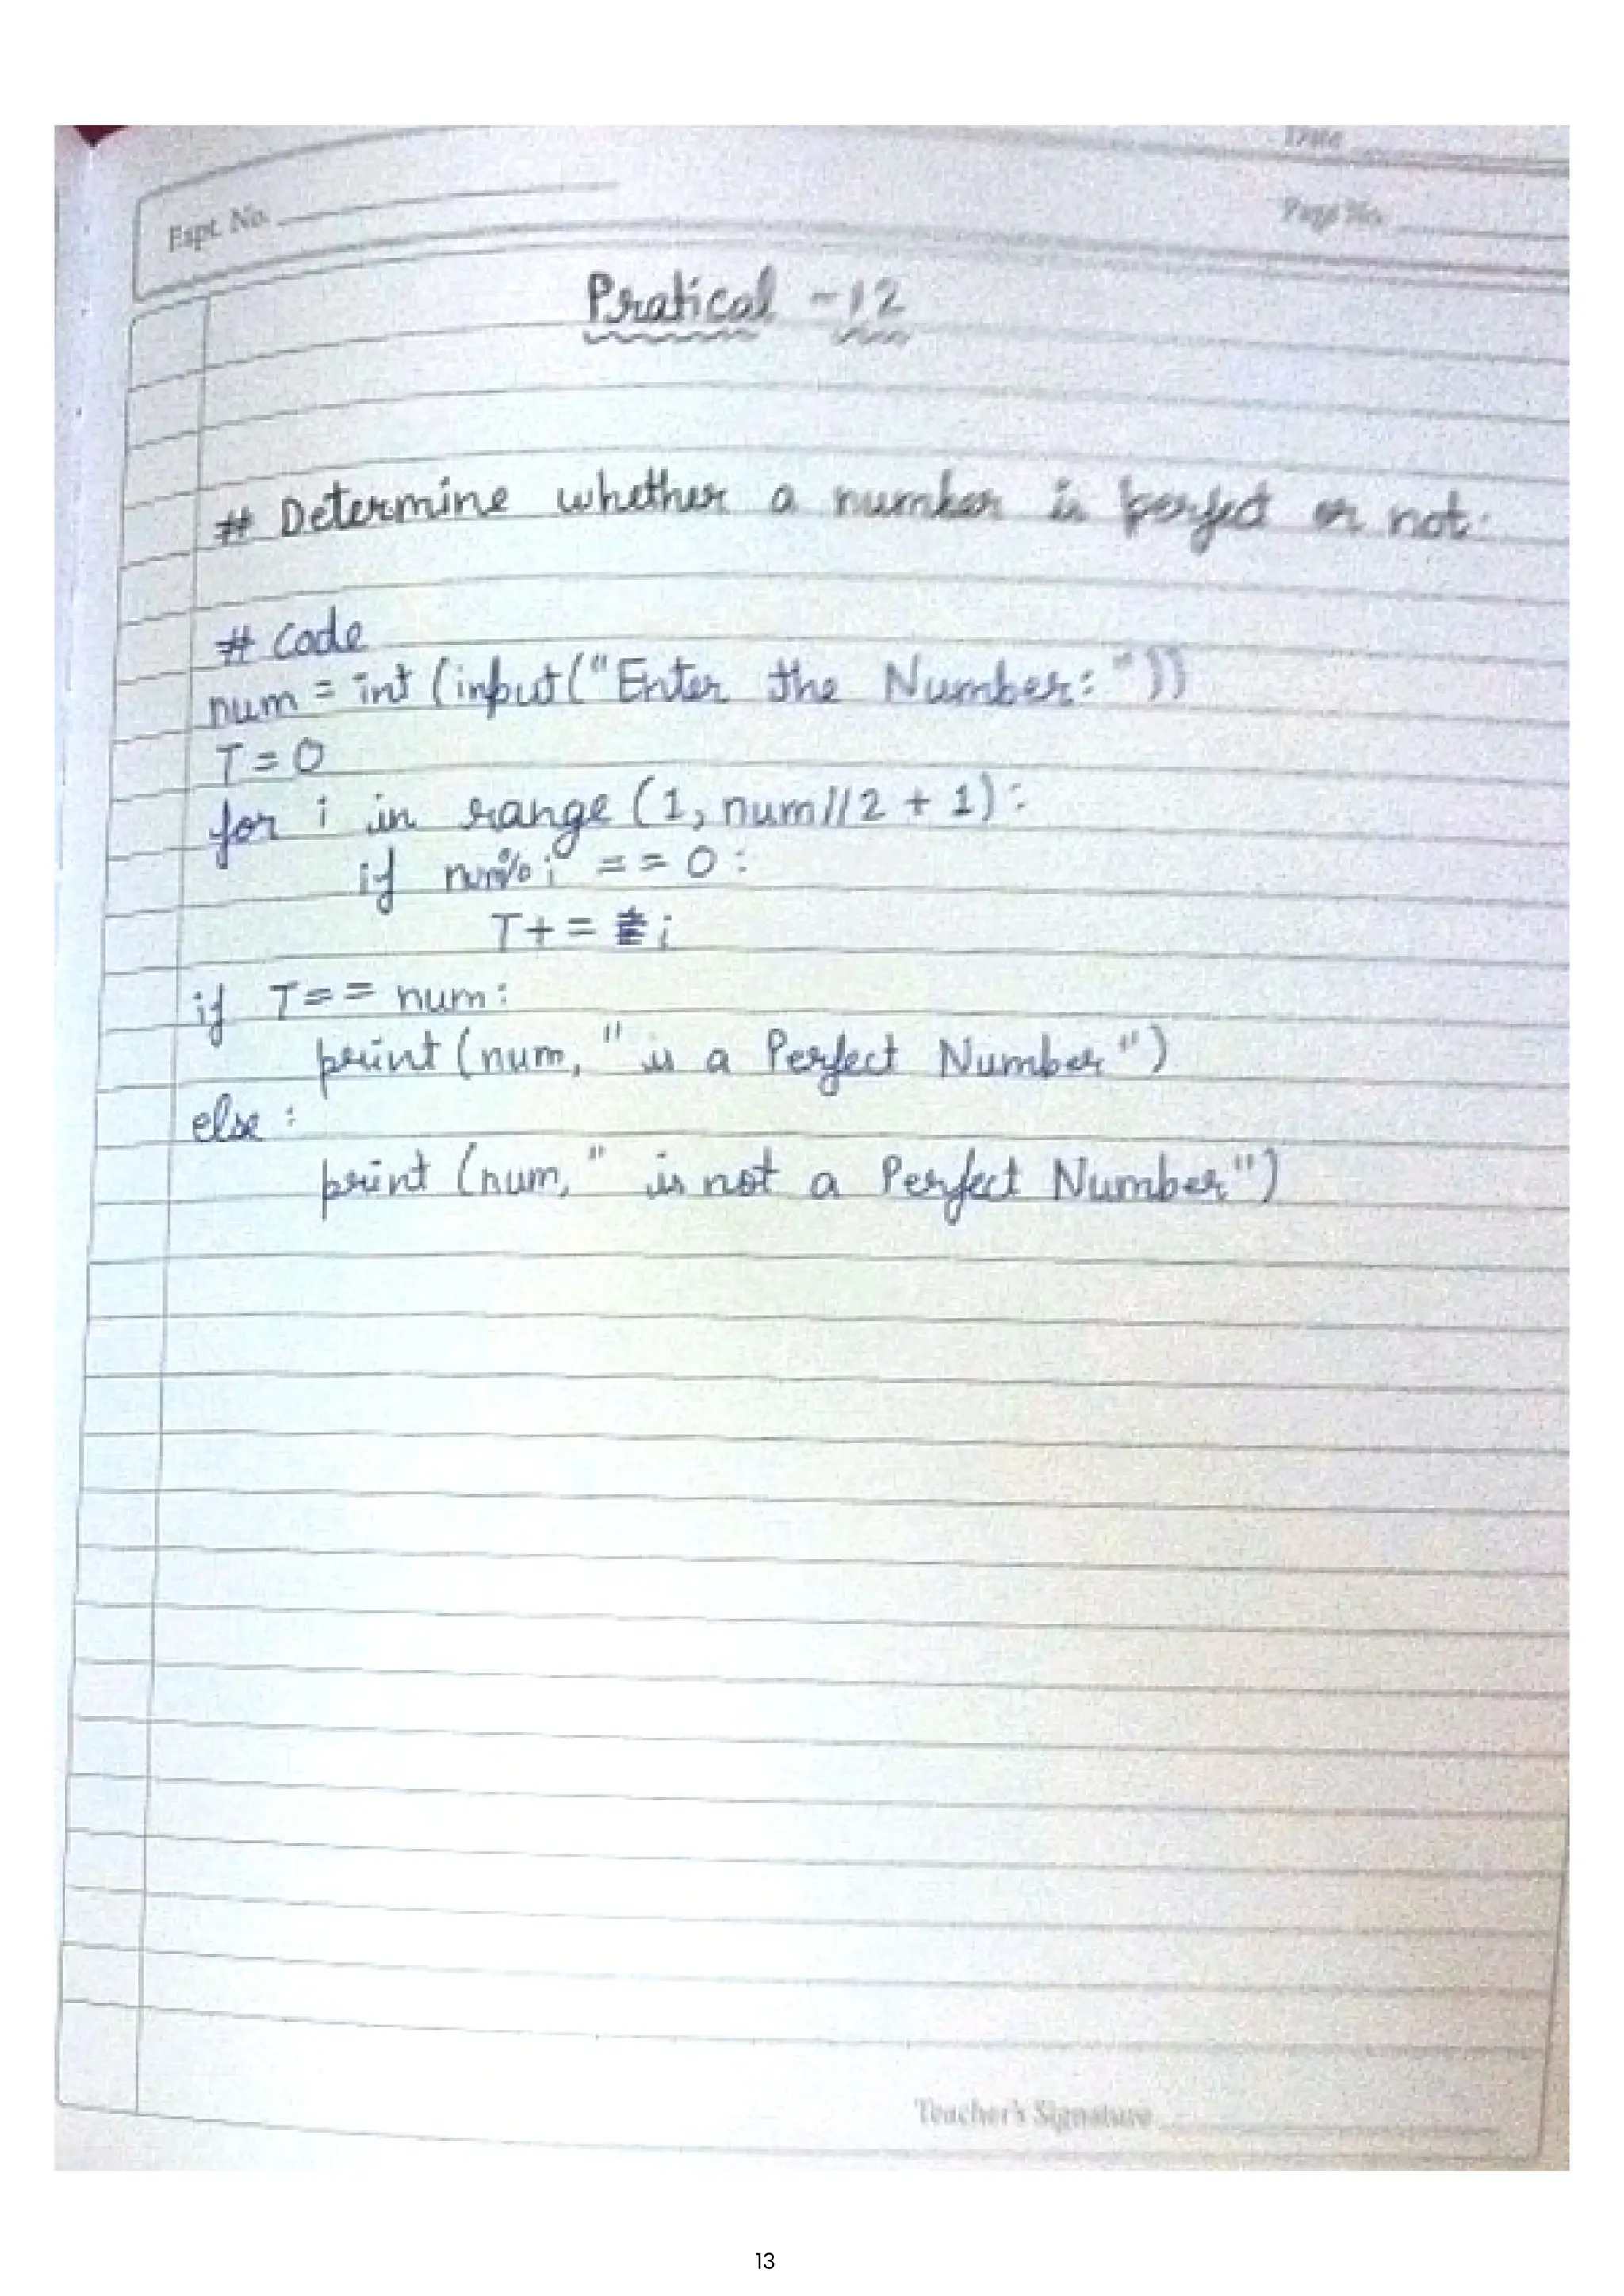 Date
Expt. No.
Page No.
Pratical - 12
# Determine whether a number is perfect or not.
# Code
num = int (input("Enter the Number: "))
T = 0
for i in range (1, num//2 + 1):
if num%i == 0:
T+= i
if T== num:
print (num, " is a Perfect Number")
else :
print (num, " is not a Perfect Number")
Teacher's Signature
13